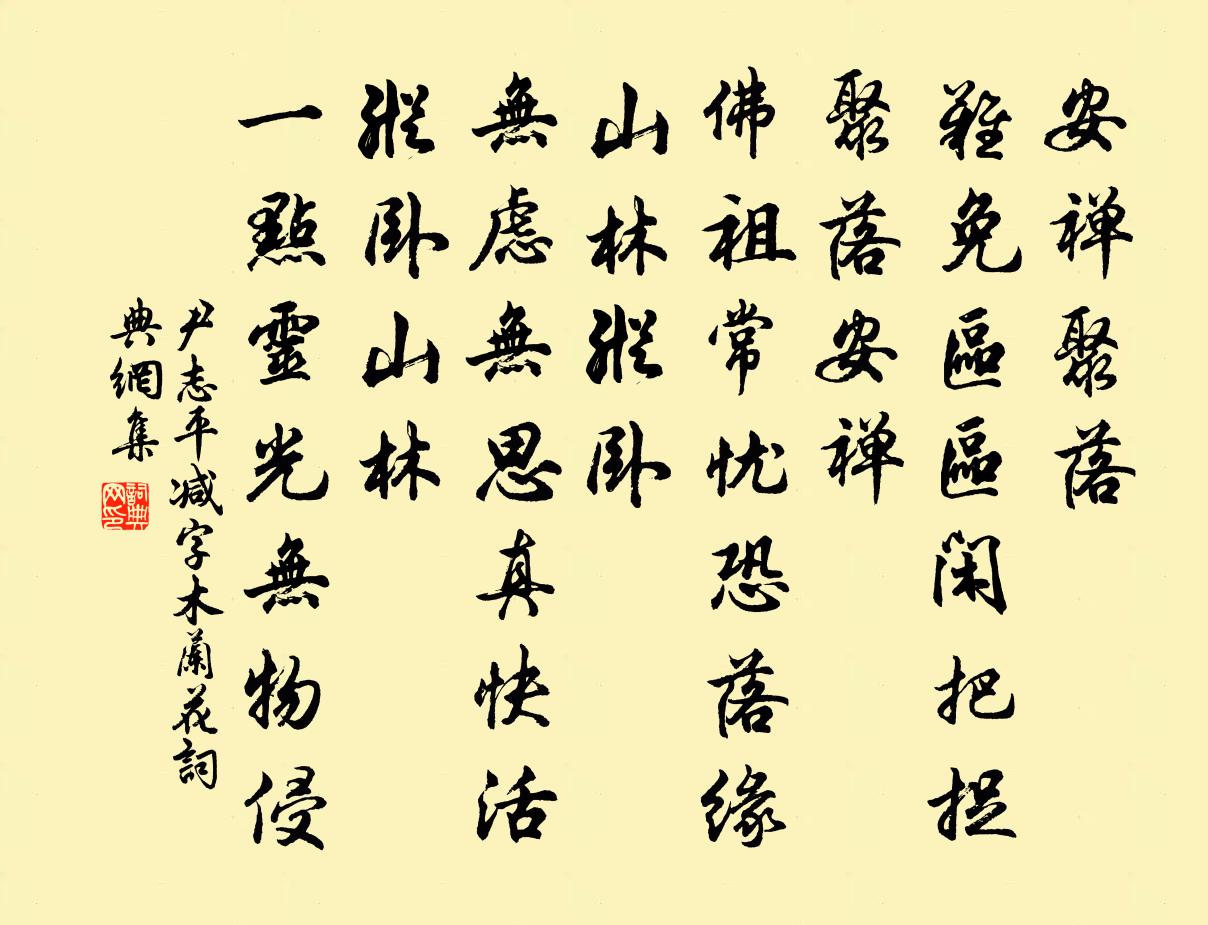 安禅聚落
難免區區閑把捉
聚落安禅
佛祖常忧恐落缘
山林縱卧
無慮無思真快活
縱卧山林
一點靈光無物侵
尹志平減字木蘭花詞
典網集
詞典网印